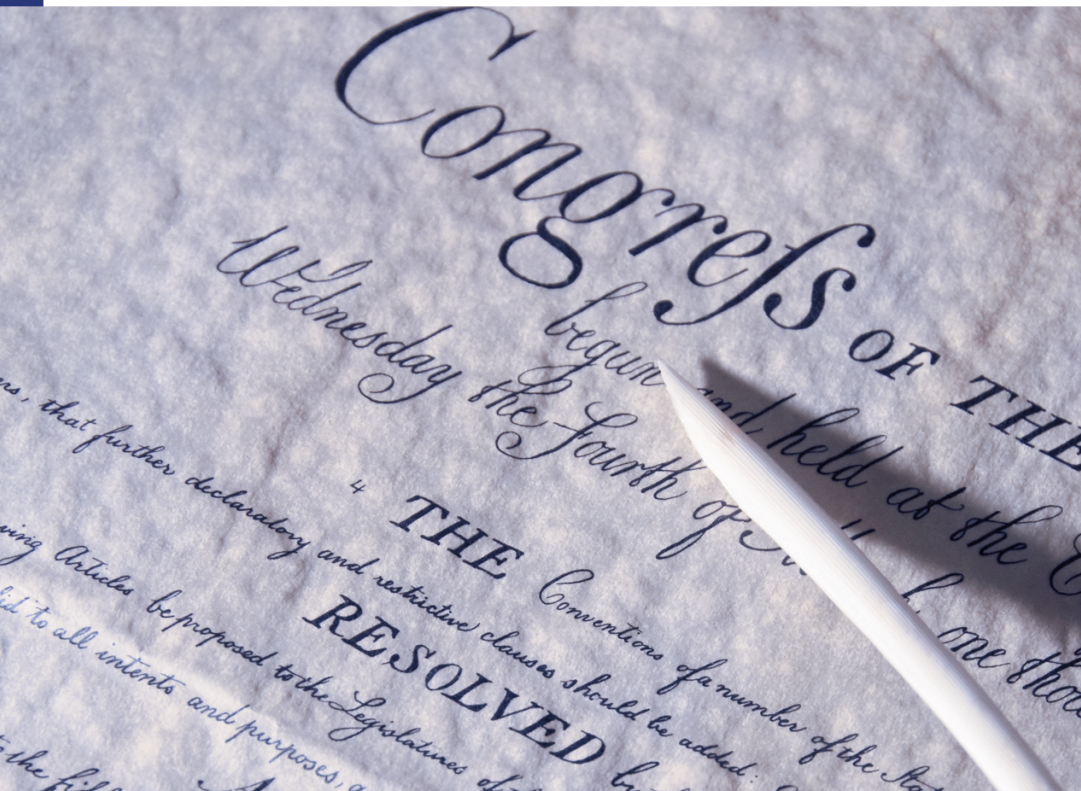 Congreſs OF THE
begun and held at the
Wednesday the Fourth of
THE Conventions of a number of the
that further declaratory and restrictive clauses should be added:
RESOLVED
Articles be proposed to the Legislatures of
to all intents and purposes,
the